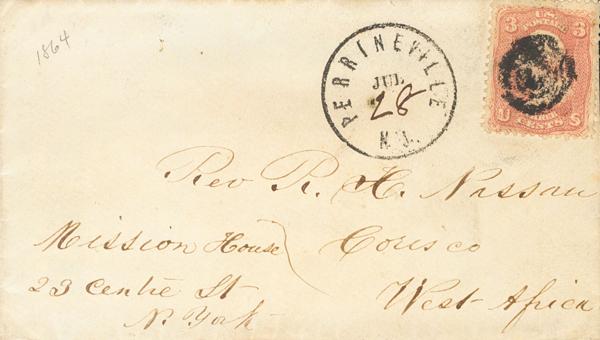 1864
PERRINEVILLE
JUL
28
N.J.
U.S. POSTAGE
3 3
U S
THREE CENTS
Rev R. H. Nassau
Mission House
Corisco
23 Centre St
West Africa
N. York